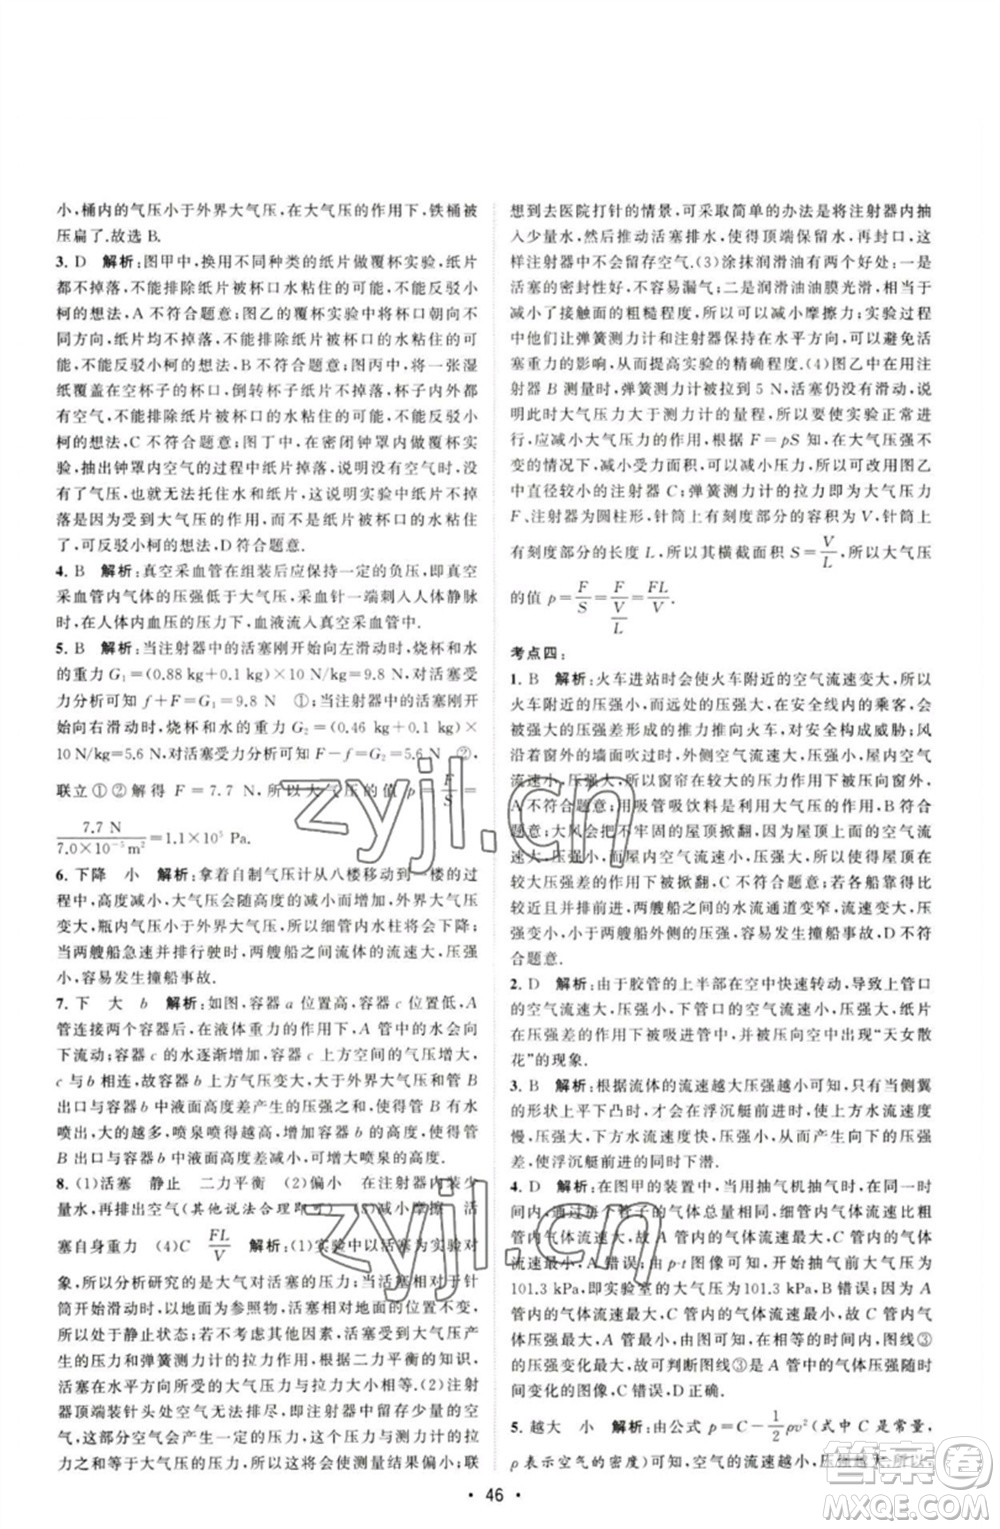 小,桶内的气压小于外界大气压,在大气压的作用下,铁桶被
压扁了.故选 B.
3. D 解析:图甲中,换用不同种类的纸片做覆杯实验,纸片
都不掉落,不能排除纸片被杯口水粘住的可能,不能反驳小
柯的想法,A 不符合题意;图乙的覆杯实验中将杯口朝向
不同方向,纸片都不掉落,不能排除纸片被杯口的水粘住的
可能,不能反驳小柯的想法,B 不符合题意;图丙中,将一张
纸覆盖在空杯子的杯口,倒转杯子纸片下落,是由于杯子内
有空气,不能排除纸片被杯口的水粘住的可能,不能反驳小
柯的想法,C 不符合题意;图丁中,在密闭钟罩内做覆杯实
验,抽出钟罩内空气的过程中纸片掉落,说明没有空气时,大
气压没有了,无法托住水和纸片,所以说明纸片不掉落
是因为受到大气压的作用,而不是纸片被杯口的水粘住
了,可反驳小柯的想法,D 符合题意.
4. B 解析:真空采血管在组装后应保持一定的负压,即真空
采血管内气体的压强低于大气压强,采血针一端刺入人体静脉
时,在人体内血压的作用下,血液流入真空采血管中.
5. B 解析:当注射器中的活塞刚开始向左滑动时,烧杯和水
的重力 G₁=(0.88 kg+0.1 kg)×10 N/kg=9.8 N,对活塞受
力分析可知 f+F=G₁=9.8 N ①;当注射器中的活塞刚
开始向右滑动时,烧杯和水的重力 G₂=(0.46 kg+0.1 kg)×
10 N/kg=5.6 N,对活塞受力分析可知 F-f=G₂=5.6 N ②,
联立①②解得 F=7.7 N,所以大气压的值 p=F/S=
7.7 N/7.0×10⁻⁵m²=1.1×10⁵ Pa.
6. 下降 小 解析:拿着自制气压计从八楼移动到一楼的过
程中,高度减小,大气压随高度的减小而增大,外界大气压
变大,瓶内气压小于外界大气压,所以细管内水柱将会下降;
当两艘船急速并行时,两艘船之间流体的流速大、压强
小,容易发生撞船事故.
7. 下 大 b 解析:如图,容器 a 位置高,容器 c 位置低,A
管连接两个容器后,在液体重力的作用下,A 管中的水会向
下流动;容器 c 的水逐渐增加,c 上方空间的气压增大,
c 与 b 相连,故容器 b 中气压增大,大于外界大气压与管 B
出口与容器 b 中液面高度差产生的压强之和,使管 B 有水
喷出,大的越多,喷泉喷得越高,最大高度越大;因此,增大
管 B 出口与容器 b 中液面高度差,可增大喷泉的高度.
8. (1)活塞 静止 二力平衡 (2)偏小 在注射器内装少
量水,再排出空气(其他说法合理即可) (3)减小摩擦 活
塞自身重力 (4)C FL/V 解析:(1)实验中以活塞为实验对
象,所以分析研究的是大气对活塞的压力;实验过程中,针
筒开始滑动时,以地面为参照物,活塞保持静止,所以活塞
处于静止状态;若不考虑摩擦,活塞在水平方向上受到大气压产
生的压力和弹簧测力计的拉力作用,根据二力平衡的知识,
活塞在水平方向所受的大气压力与拉力大小相等.(2)注射
器顶端装针头处空气无法排尽,导致筒内残留部分空气,这
部分空气会产生一定的压力,大气压力与测力计的拉力、
空气的压力相等,所以将会使测量结果偏小;联
想到去医院打针的情景,可采取简单的办法是将注射器内抽
少量水,然后推动活塞排水,使顶端保留水,再封口,这
样注射器内不会留存空气.(3)涂抹润滑油有两个好处:一是
活塞的密封性更好,不容易漏气;二是润滑油油膜光滑,相当于
减小了接触面的粗糙程度,所以可以减小摩擦力;实验过
程中他们让弹簧测力计和注射器保持在水平方向,可以避免活
塞重力的影响,从而提高实验的精确程度.(4)图乙中在用注
射器 B 测量时,弹簧测力计被拉到 5 N,活塞仍没有滑动,说
明此时大气压力大于测力计的量程,所以要使实验正常进
行,应减小大气压力的作用,根据 F=pS 可知,在大气压强不
变的情况下,减小受力面积,可以减小压力,所以可采用图乙
中直径较小的注射器 C;弹簧测力计的拉力即为大气压力
F、注射器为圆柱形,针筒上有刻度部分的容积为 V,针筒上
有刻度部分的长度 L,所以其横截面积 S=V/L,所以大气压
的值 p=F/S=F/(V/L)=FL/V.
考点四:
1. B 解析:火车进站时会使火车附近的空气流速变大,所以
火车附近的压强减小,而远处的、在安全线以内的乘客,会
被强大的压强差形成的推力推向火车,对安全保障不利;风
沿着窗外的墙面吹过时,外侧空气流速大,压强小,屋内空气
流速小,压强大,所以窗帘在较大的压力作用下被压向窗外,
A 不符合题意;用吸管吸饮料是利用大气压工作的,B 符
合题意;大风会将不太牢固的屋顶掀翻,是因为屋外空气流
速大,压强小,而屋内空气流速小,压强大,所以屋顶在
压强差的作用下被掀翻,C 不符合题意;若各船靠得比较
近,在向前航行时,两艘船之间的水流通道变窄,流速变大,
压强变小,两艘船外侧压强大,容易发生撞船事故,D 不符
合题意.
2. D 解析:由于胶管的上半部在空中快速转动,使上管口
的空气流速增大,压强减小,下管口的空气压强大,纸片
在压强差的作用下被吸进管中,并压向空中出现“天女散
花”的现象.
3. B 解析:根据流体的流速越大压强越小可知,只有当侧翼
的形状上平下凸时,才会在浮沉艇前进时,上方水流速度
慢,压强大,下方水流速度快,压强小,产生向下的压力,
实现浮沉艇前进的同时下潜.
4. D 解析:在图甲的装置中,当用抽气机抽气时,在同样的
时间内,通过每个管子的气体总量相同,细管内气体的流速大,
粗管内的流速小,A 错误;由 p-t 图可知,开始抽气前气压为
101.3 kPa,即实验室的大气压为 101.3 kPa,B 错误;因为 A
管内的气体流速最大,C 管内的气体流速最小,故 C 管内气
体压强最大,A 管最小,由图可知,在相等的时间内,图线①
的压强最大,③最小,故可判断图线③是 A 管中的气体压强随时
间变化的图像,C 错误,D 正确.
5. 越大 小 解析:由公式 p=C-1/2ρv²(式中 C 是常量,
ρ 表示空气的密度)可知,空气的流速越小,压强越大,所以
• 46 •
zyjl.cn
zyjl.cn
答案圈
MXQE.COM